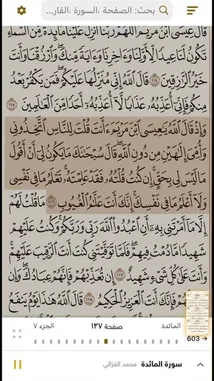 بحث: الصفحة ،السورة ،القار..
قال عيسى ابن مريم اللهم ربنا أنزل علينا مائدة من السماء
تكون لنا عيدا لأولنا وءاخرنا وءاية منك وارزقنا وأنت
خير الرازقين ١١٤ قال الله إني منزلها عليكم فمن يكفر بعد
منكم فإني أعذبه عذابا لا أعذبه أحدا من العالمين ١١٥
وإذ قال الله يعيسى ابن مريم ءأنت قلت للناس اتخذوني
وأمي إلهين من دون الله قال سبحنك ما يكون لي أن أقول
ما ليس لي بحق إن كنت قلته فقد علمته تعلم ما في نفسي
ولا أعلم ما في نفسك إنك أنت علم الغيوب ١١٦ ما قلت لهم
إلا ما أمرتني به أن اعبدوا الله ربي وربكم وكنت عليهم
شهيدا ما دمت فيهم فلما توفيتني كنت أنت الرقيب عليهم
وأنت على كل شيء شهيد ١١٧ إن تعذبهم فإنهم عبادك وإن
تغفر لهم فإنك أنت العزيز الحكيم ١١٨ قال الله هذا يوم ينفع
المائدة صفحة ١٢٧ الجزء ٧
603
سورة المائدة محمد الغزالي